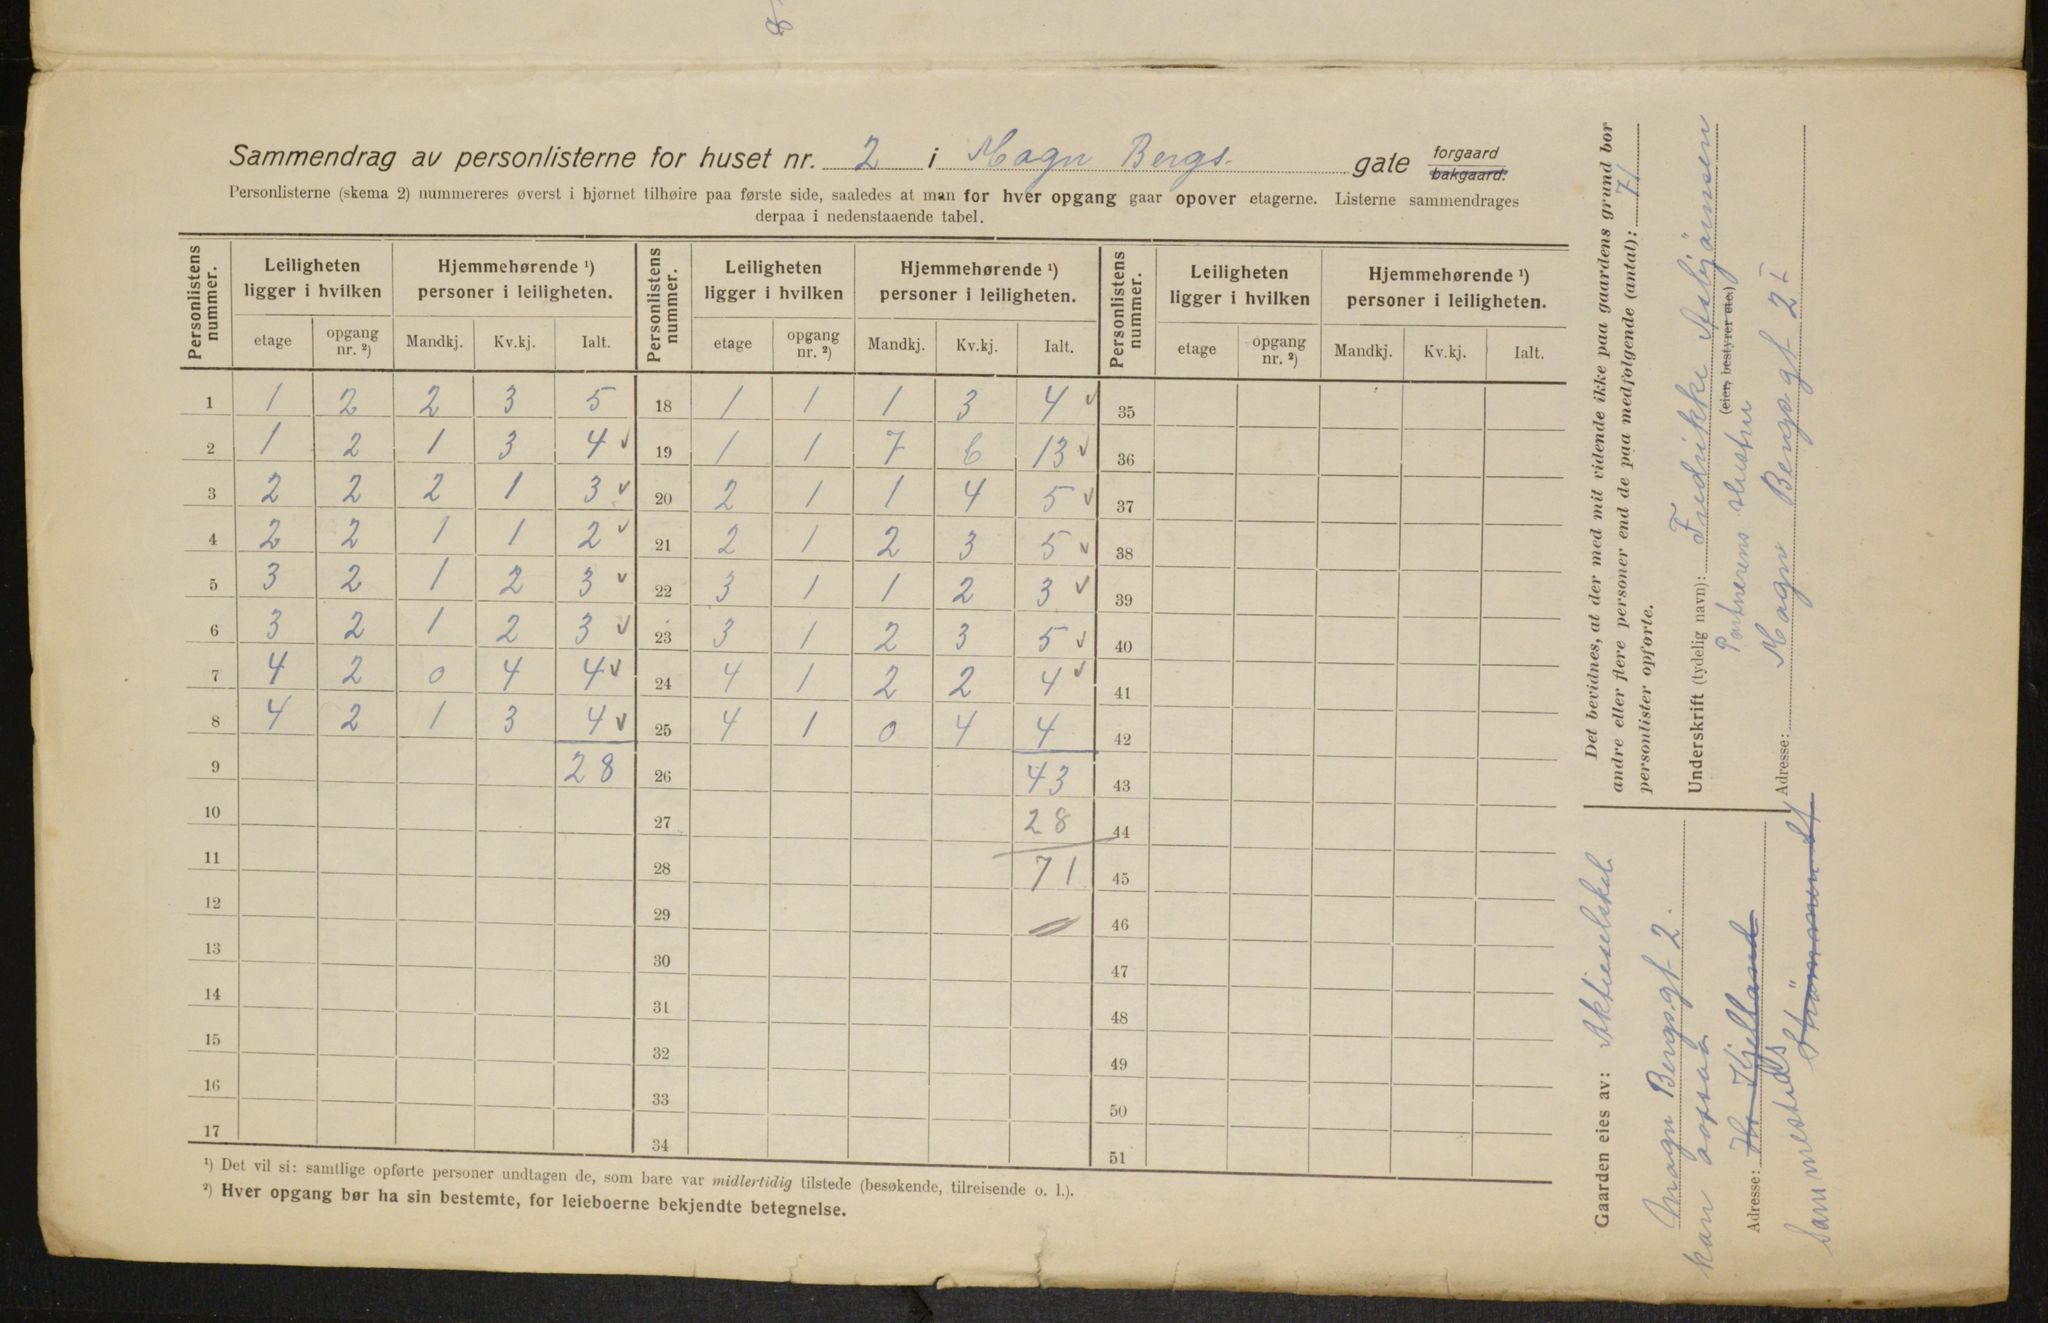 Sammendrag av personlisterne for huset nr. 2 i Magn Bergs gate forgaard bakgaard.
Personlisterne (skema 2) nummereres øverst i hjørnet tilhøire paa første side, saaledes at man for hver opgang gaar opover etagerne. Listerne sammendrages
derpaa i nedenstaaende tabel.
Personlistens nummer. Leiligheten ligger i hvilken Hjemmehørende ¹) personer i leiligheten. Personlistens nummer. Leiligheten ligger i hvilken Hjemmehørende ¹) personer i leiligheten. Personlistens nummer. Leiligheten ligger i hvilken Hjemmehørende ¹) personer i leiligheten.
etage opgang nr. ²) Mandkj. Kv.kj. Ialt. etage opgang nr. ²) Mandkj. Kv.kj. Ialt. etage opgang nr. ²) Mandkj. Kv.kj. Ialt.
1 1 2 2 3 5 18 1 1 1 3 4 ✓ 35
2 1 2 1 3 4 ✓ 19 1 1 7 6 13 ✓ 36
3 2 2 2 1 3 ✓ 20 2 1 1 4 5 ✓ 37
4 2 2 1 1 2 ✓ 21 2 1 2 3 5 ✓ 38
5 3 2 1 2 3 ✓ 22 3 1 1 2 3 ✓ 39
6 3 2 1 2 3 ✓ 23 3 1 2 3 5 ✓ 40
7 4 2 0 4 4 ✓ 24 4 1 2 2 4 ✓ 41
8 4 2 1 3 4 ✓ 25 4 1 0 4 4 42
9 28 26 43 43
10 27 28 44
11 28 71 45
12 29 46
13 30 47
14 31 48
15 32 49
16 33 50
17 34 51
¹) Det vil si: samtlige opførte personer undtagen de, som bare var midlertidig tilstede (besøkende, tilreisende o. l.).
²) Hver opgang bør ha sin bestemte, for leieboerne bekjendte betegnelse.
Det bevidnes, at der med mit vidende ikke paa gaardens grund bor
andre eller flere personer end de paa medfølgende (antal): 71
personlister opførte.
Underskrift (tydelig navn): Fredrikke Asbjörnsen
(eier, bestyrer etc.)
Portnerens Hustru
Adresse: Magn Bergs gt 2 I
Gaarden eies av: Aktieselskab
Magn Bergs. gt 2.
kan ogsaa
Adresse: Hr Kjelland
Sammesteds Strömmen St